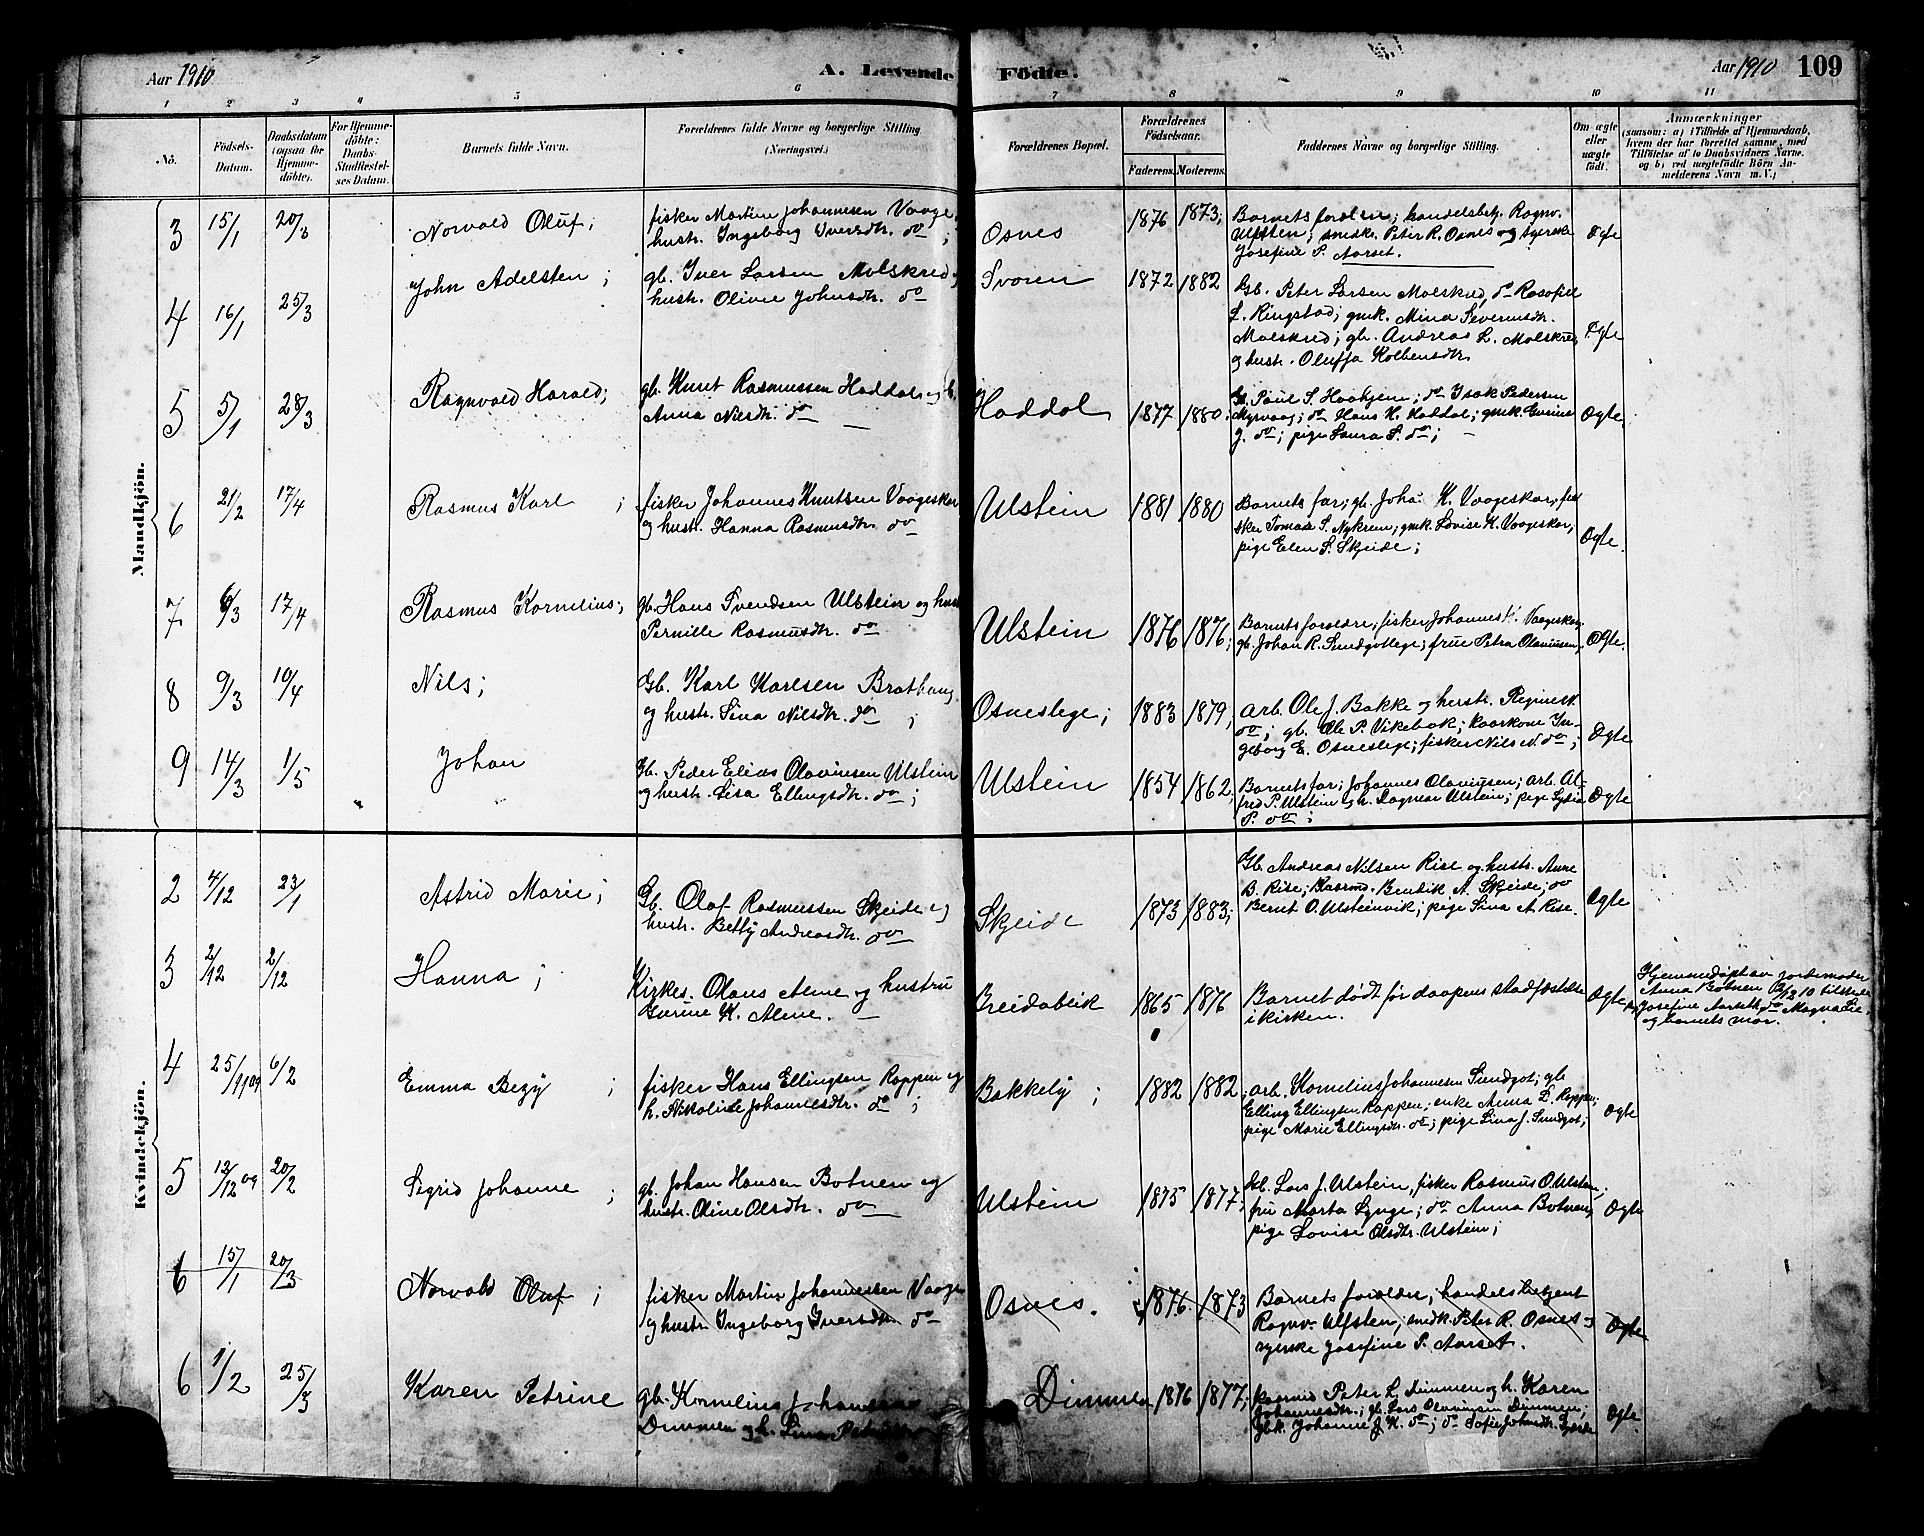 Aar 1910
A. Levende Födte.
Aar 1910 109
1 2 3 4 5 6 7 8 9 10 11
No.
Födsels-Datum.
Daabsdatum (ogsaa for Hjemme-döbte).
For Hjemme-döbte: Daabs-Stadfæstel-ses Datum.
Barnets fulde Navn.
Forældrenes fulde Navne og borgerlige Stilling (Næringsvei.)
Forældrenes Bopæl.
Forældrenes Födselsaar.
Faderens. Moderens.
Faddernes Navne og borgerlige Stilling.
Om ægte eller uægte födt.
Anmærkninger
(saasom: a) i Tilfælde af Hjemmedaab,
hvem der har forrettet samme, med
Tilföielse af to Daabsvidners Navne.
og b) ved uægtefödte Börn An-
melderens Navn m. V.)
Mandkjön.
3 15/1 20/3 Norvald Oluf; fisker Martin Johannesen Vaage
hustr. Ingeborg Iversdtr. do ; Osnes 1876 1873; Barnets foreldre; handelsbetj. Ragnv.
Ulfsten; smedk. Peter R. Osnes og syerske
Josefine P. Aarset. Ægte
4 16/1 25/3 John Adelsten ; gb. Iver Larsen Molskred
hustr. Oline Johnsdtr. do Svoren 1872 1882 Gb. Peter Larsen Molskred, do
L. Ringstad; gmk. Mina Severinsdtr.
Molskred; gb. Andreas L. Molskred
og hustr. Oluffa Kolbensdtr. Ægte
5 5/1 28/3 Ragnvald Harald; gb. Knut Rasmussen Haddal og h.
Anna Nilsdtr. do Haddal 1877 1880. Gb. Paul S. ; do Isak Pedersen
Myrvaag; do Hans K. Haddal; gmk.
J. do; pige Laura S. do; Ægte
6 21/2 17/4 Rasmus Karl ; fisker Johannes Knutsen Vaageskar
og hustr. Hanna Rasmusdtr. do Ulstein 1881 1880 Barnets far; gb. Joha. K. Vaageskar; fi-
sker Tomas S. Nykrem; gmk. Lovise K. Vaageskar,
pige Elen S. Skeide; Ægte.
7 6/3 17/4 Rasmus Kornelius; gb. Hans Svendsen Ulstein og hus
Pernille Rasmusdtr. do Ulstein 1876 1876; Barnets foreldre; fisker Johannes K. Vaageskar,
gb. Johan R. Sundgotlege; frue Petra Olavsen, Ægte.
8 9/3 10/4 Nils; Gb. Karl Karlsen Brathaug
og hustr. Sina Nilsdtr. do ; Osneslege; 1883 1879; arb. Ole J. Bakke og hustr. Regine
do; gb. Ole P. Vikebak; kaarkone In-
geborg E. Osneslege; fisker Nils N. do ; Ægte
9 14/3 1/5 Johan Gb. Peder Elias Olavsen Ulstein
og hustr. Lisa Ellingsdtr. do ; Ulstein 1854 1862; Barnets far; Johannes Olavsen; arb. Al-
fred P. Ulstein og h. Dagmar Ulstein; pige Lydia
P. do ; Ægte
Kvindekjön.
2 4/12 23/1 Astrid Marie; Gb. Olaf Rasmussen Skeide og
hustr. Betty Andreasdtr. do Skeide 1873 1883; Gb. Andreas Nilsen Rise og hustr. Anne
B. Rise; Kaarmd. Bendik A. Skeide; do
Bernt O. Ulsteinvik; pige Sina A. Rise. Ægte
3 2/12 2/12 Hanna ; Kirkes. Olaus Alme og hustru
Gurine K. Alme. Breidableik 1865 1876 Barnet dødt før daapens stadfæstelse
i kirken. Ægte Hjemmedøpt av jordemoder
Anna Botnen 2/12 10 tilstede
Josefine Aarseth, do Magna Lie,
og barnets mor.
4 25/11 09 6/2 Emma Bezy ; fisker Hans Ellingsen Rappen og
h. Nikoline Johannesdtr. do ; Bakkeby ; 1882 1882; arb. Kornelius Johannesen Sundgot; gb.
Elling Ellingsen Rappen; enke Anna L. Rappen;
pige Marie Ellingsdtr. do; pige Lina J. Sundgot; Ægte
5 12/12 09 20/2 Sigrid Johanne ; gb. Johan Hansen Botnen og
hustr. Oline Olsdtr. do Ulstein 1875 1877; Gb. Lars J. Ulstein, fisker Rasmus O. Ulstein,
frü Marta Lynge; do Anna Botnen,
pige Lovise Olsdtr. Ulstein; Ægte
6 15/1 20/3 Norvald Oluf ; fisker Martin Johannessen Vaage
og hustr. Ingeborg Iversdtr. do Osnes. 1876. 1873 Barnets foreldre; handelsbetjent
Ragnv. Ulfsten; smedk. Peter R. Osnes
syerske Josefine P. Aarset. Ægte
6 1/2 25/3 Karen Petrine gb. Kornelius Johannesen
Dimmen og h. Lina Dimmen 1876 1877; kaarmd. Peter L. Dimmen og h. Karen
Johannesdtr.; gb. Lars Olavsen Dimmen;
gbk. Johanne J. K. do; do Sofie Johansdtr. Ægte.